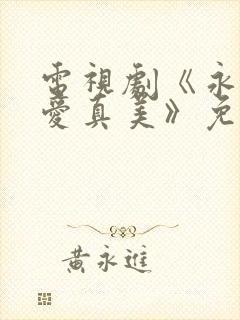 電視劇《永
愛真美》免
黃永進